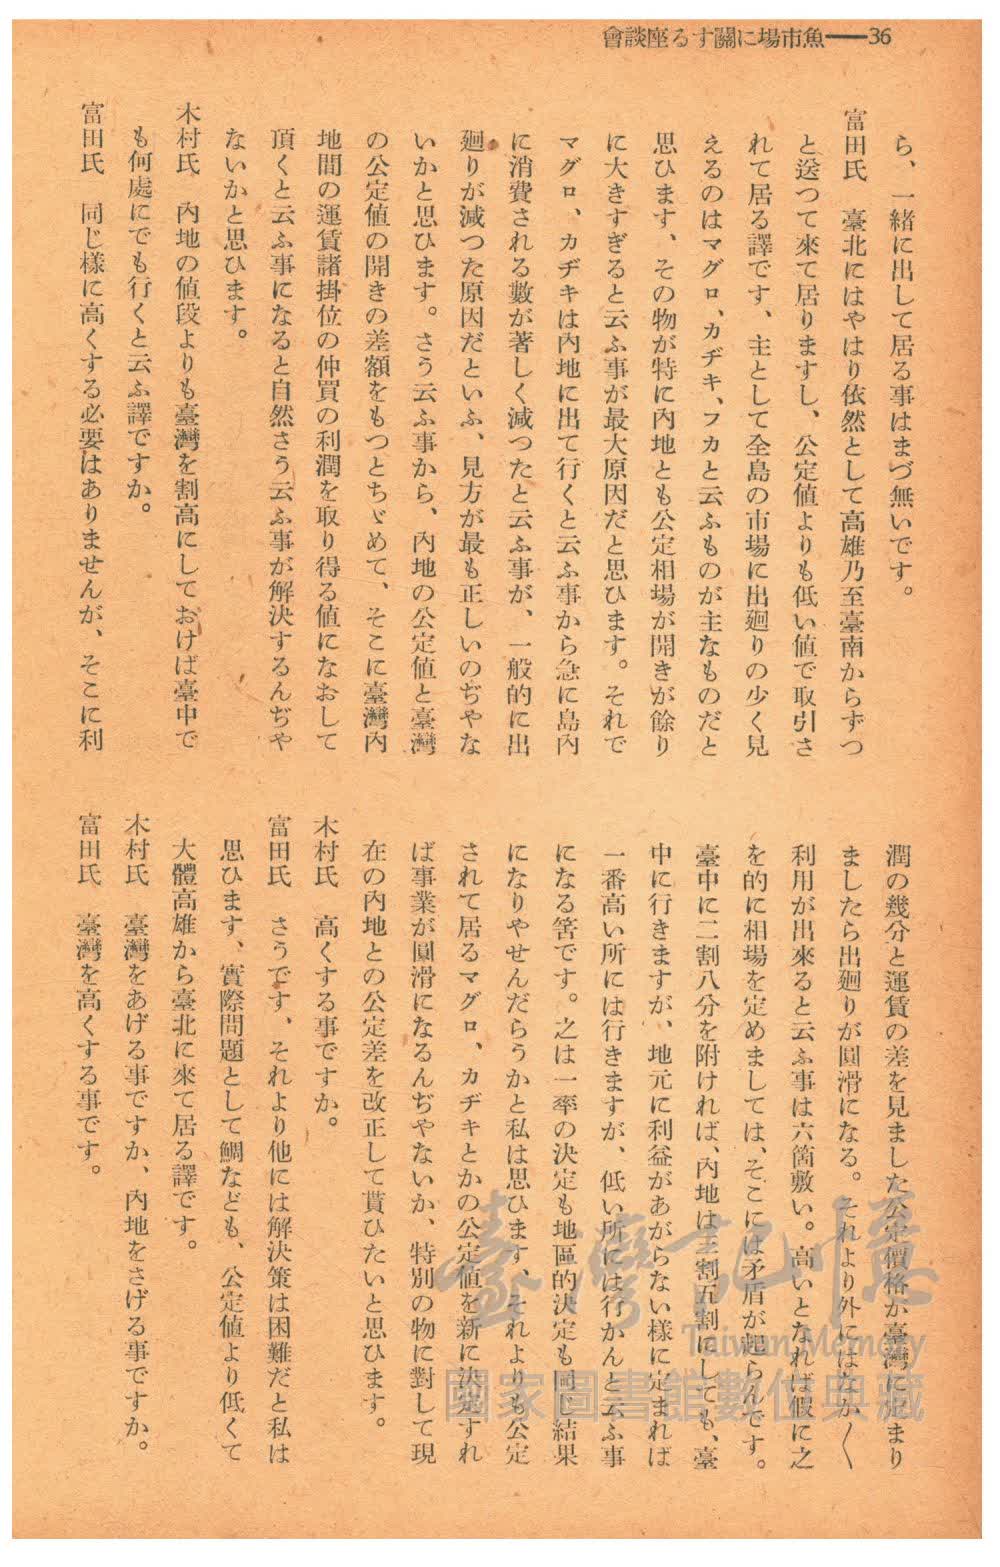 會談座るす關に場市魚——36
ら、一緒に出して居る事はまづ無いです。
富田氏　臺北にはやはり依然として高雄乃至臺南からずつ
と送つて來て居りますし、公定値よりも低い値で取引さ
れて居る譯です、主として全島の市場に出廻りの少く見
えるのはマグロ、カヂキ、フカと云ふものが主なものだと
思ひます、その物が特に內地とも公定相場が開きが餘り
に大きすぎると云ふ事が最大原因だと思ひます。それで
マグロ、カヂキは內地に出て行くと云ふ事から急に島內
に消費される數が著しく減つたと云ふ事が、一般的に出
廻りが減つた原因だといふ、見方が最も正しいのぢやな
いかと思ひます。さう云ふ事から、內地の公定値と臺灣
の公定値の開きの差額をもつとちゞめて、そこに臺灣內
地間の運賃諸掛位の仲買の利潤を取り得る値になおして
頂くと云ふ事になると自然さう云ふ事が解決するんぢや
ないかと思ひます。
木村氏　內地の値段よりも臺灣を割高にしておけば臺中で
も何處にでも行くと云ふ譯ですか。
富田氏　同じ樣に高くする必要はありませんが、そこに利
潤の幾分と運賃の差を見ました公定價格か臺灣に定まり
ましたら出廻りが圓滑になる。それより外にはなか〱
利用が出來ると云ふ事は六箇敷い。高いとなれば假に之
を的に相場を定めましては、そこには矛盾が起らんです。
臺中に二割八分を附ければ、內地は三割五割にしても、臺
中に行きますが、地元に利益があがらない樣に定まれば
一番高い所には行きますが、低い所には行かんと云ふ事
になる筈です。之は一率の決定も地區的決定も同じ結果
になりやせんだらうかと私は思ひます、それよりも公定
されて居るマグロ、カヂキとかの公定値を新に決定すれ
ば事業が圓滑になるんぢやないか、特別の物に對して現
在の內地との公定差を改正して貰ひたいと思ひます。
木村氏　高くする事ですか。
富田氏　さうです、それより他には解決策は困難だと私は
思ひます、實際問題として鯛なども、公定値より低くて
大體高雄から臺北に來て居る譯です。
木村氏　臺灣をあげる事ですか、內地をさげる事ですか。
富田氏　臺灣を高くする事です。
臺灣記憶
Taiwan Memory
國家圖書館數位典藏